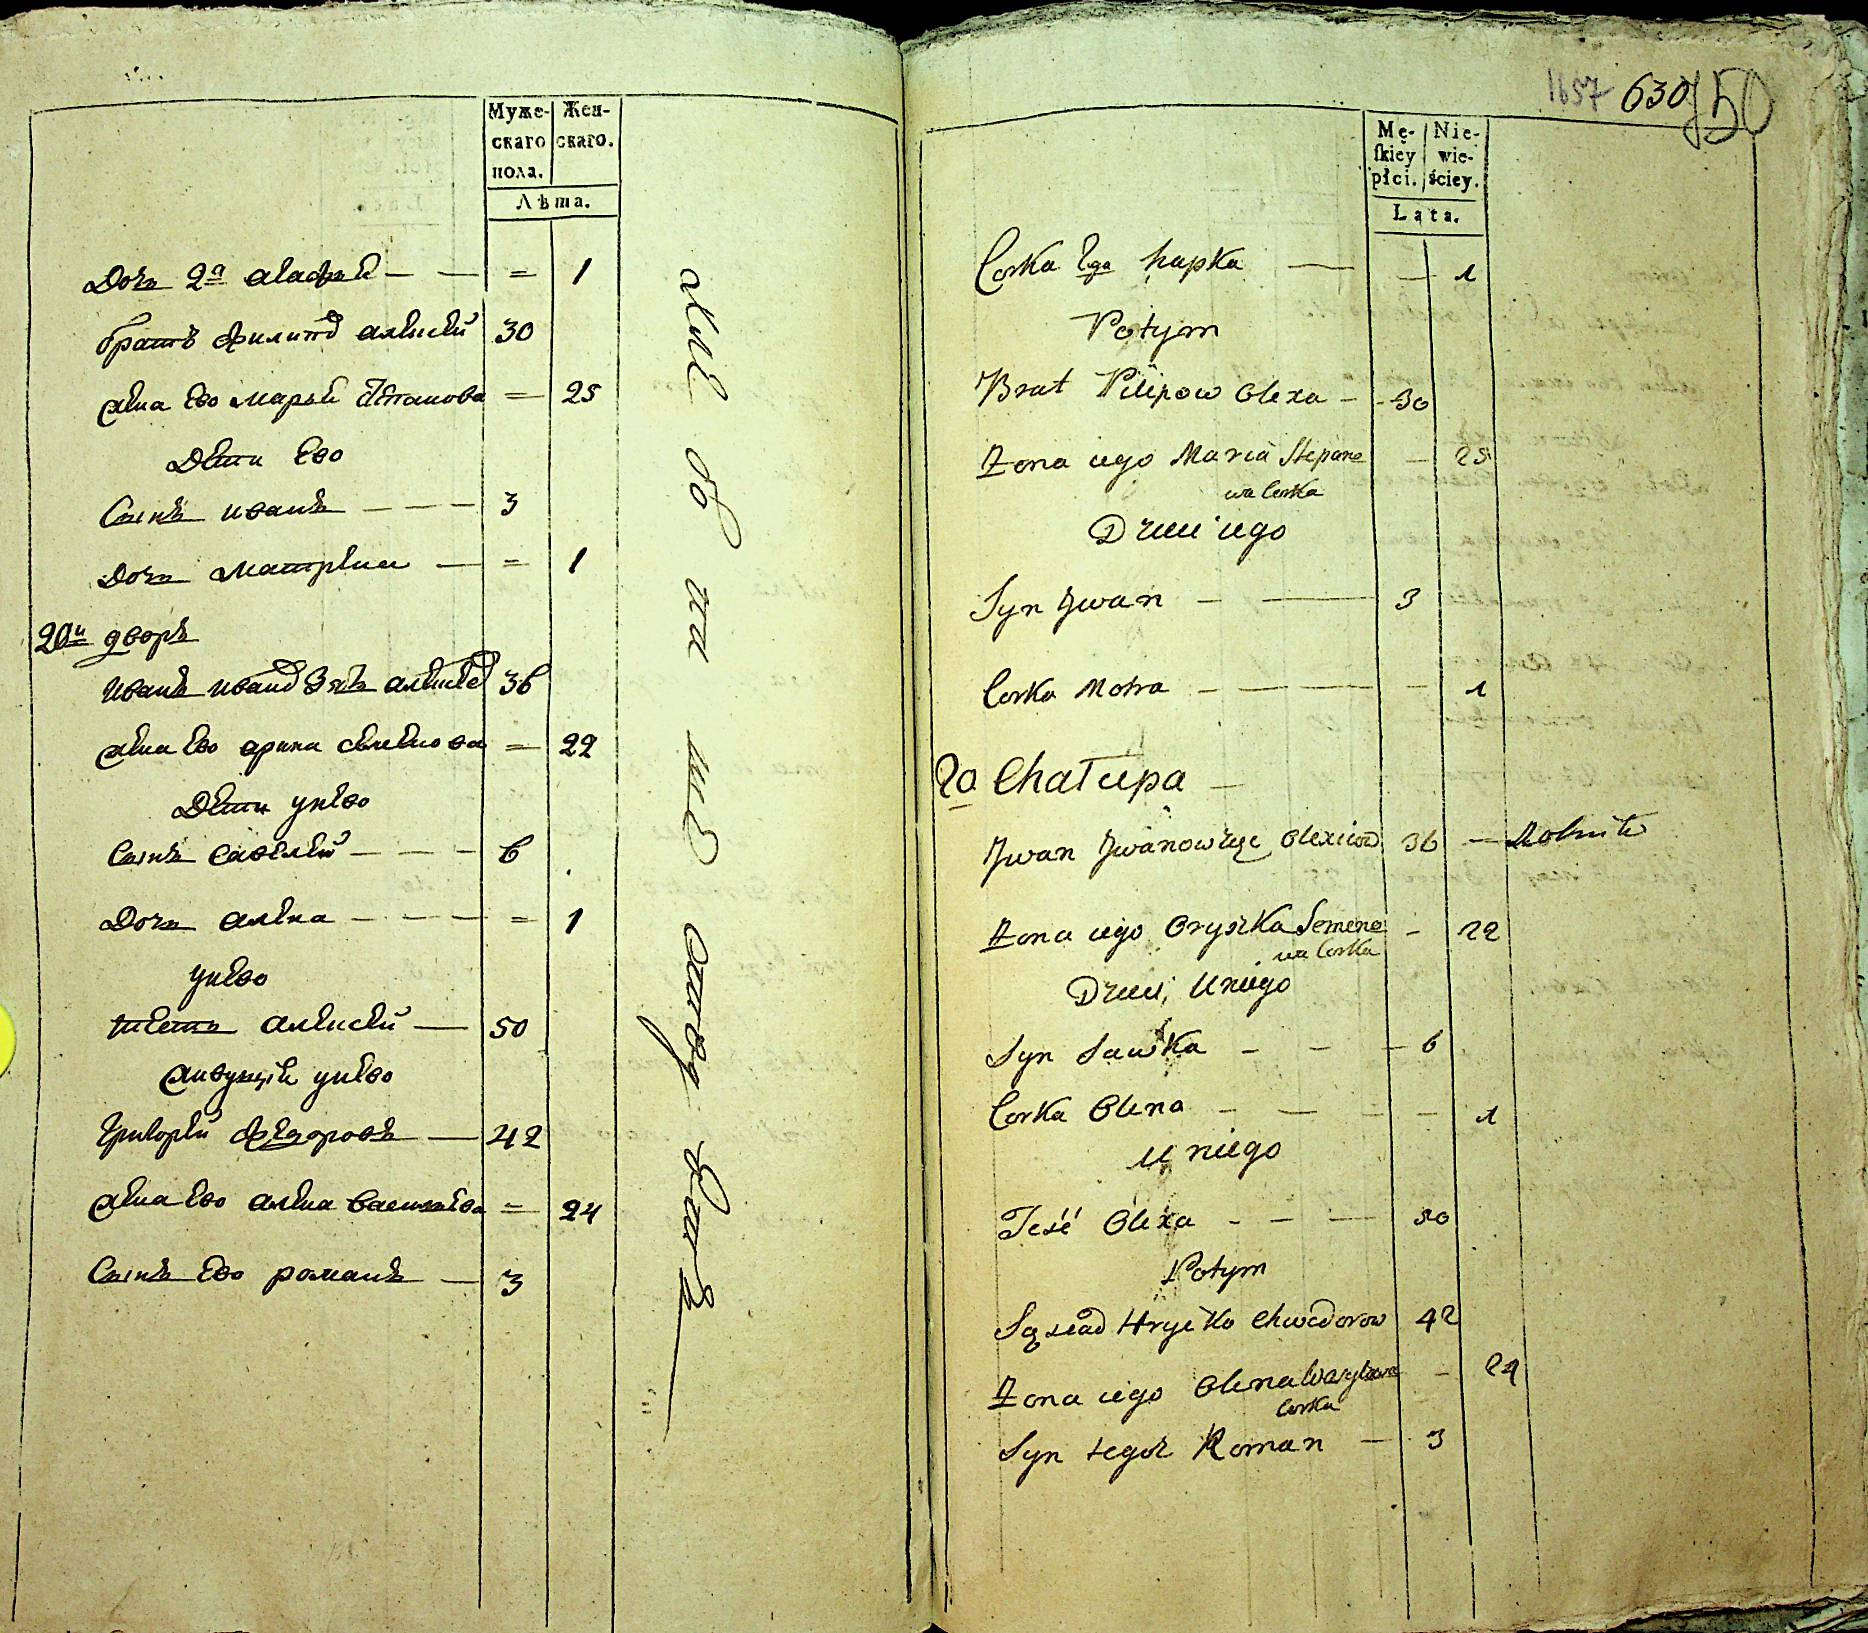 Муже-
скаго
пола.
Жен-
скаго.
Лѣта.
Дочь 2а агафья — — = 1
братъ филипъ алексеи 30
жена ево марья степанова = 25
Дети ево
Сынъ иванъ — — — 3
Дочь матрена — = 1
20и дворъ
иванъ ивановъ зять алексеев 36
жена ево арина семенова = 22
Дети унево
Сынъ савелеи — — — 6
Дочь алена — — — = 1
унево
тесть алексеи — 50
живущие унево
Григореи федоровъ — 42
жена ево алена васильева = 24
Сынъ ево романъ — 3
1657 630 50
Mę-
skiey
płci.
Nie-
wie-
ściey.
Lata.
Corka 2ga hapka — — 1
Potym
Brat Pilipow Olexa — 30
Zona iego Maria Stepano — 25
wa Corka
Dzieci iego
Syn Jwan — — 3
Corka Motra — — — — 1
20 Chałupa —
Jwan Jwanow Zięc Olexiiow 36 — Rolnik
Zona iego Oryszka Semeno — 22
wa Corka
Dzieci Uniego
Syn Sawka — — — 6
Corka Olena — — — — 1
U niego
Teść Olexa — — — 50
Potym
Sąsiad Hryćko Chwedorow 42
Zona iego Olena Wasylowa — 24
Corka
Syn tegoż Roman — 3